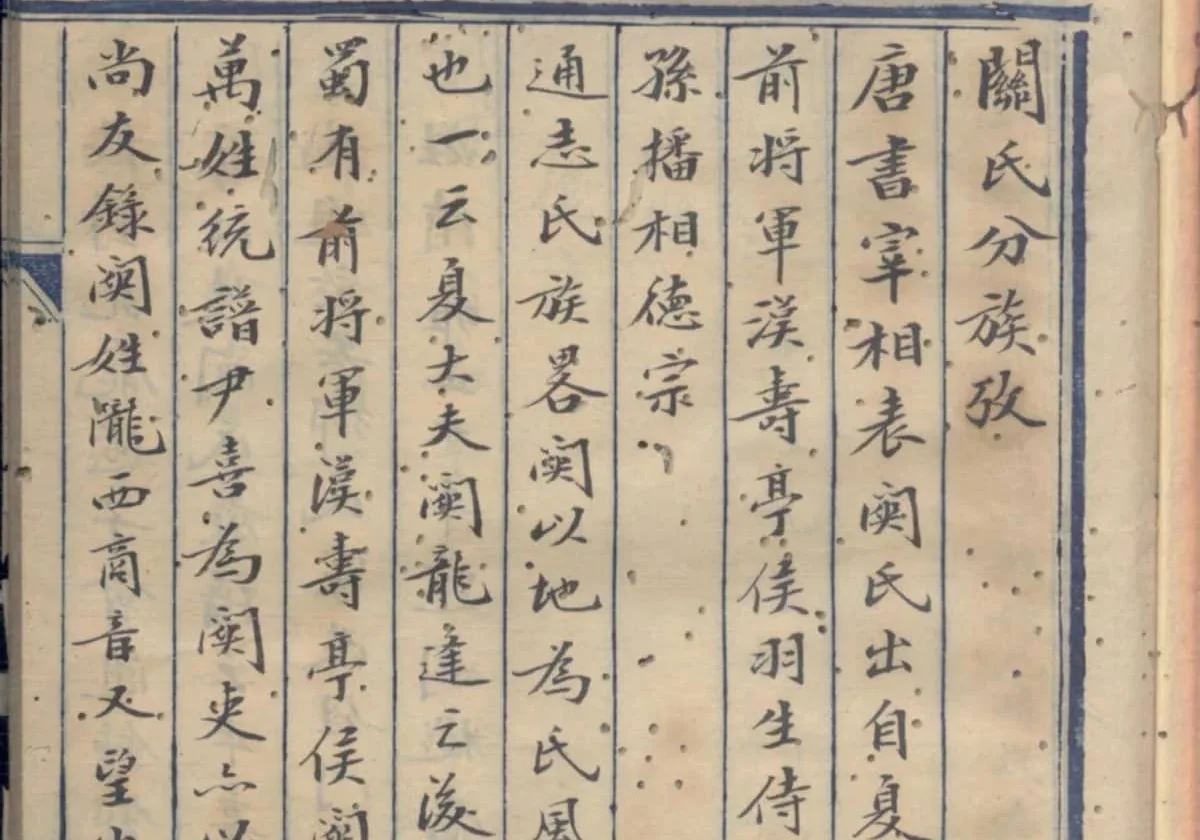 關氏分族攷
唐書宰相表関氏出自夏
前将軍漢壽亭侯羽生侍
孫播相德宗
通志氏族畧関以地為氏風
也一云夏大夫関龍逢之後
蜀有前将軍漢壽亭侯関
萬姓統譜尹喜為関吏亦以
尚友錄関姓隴西商音又望出